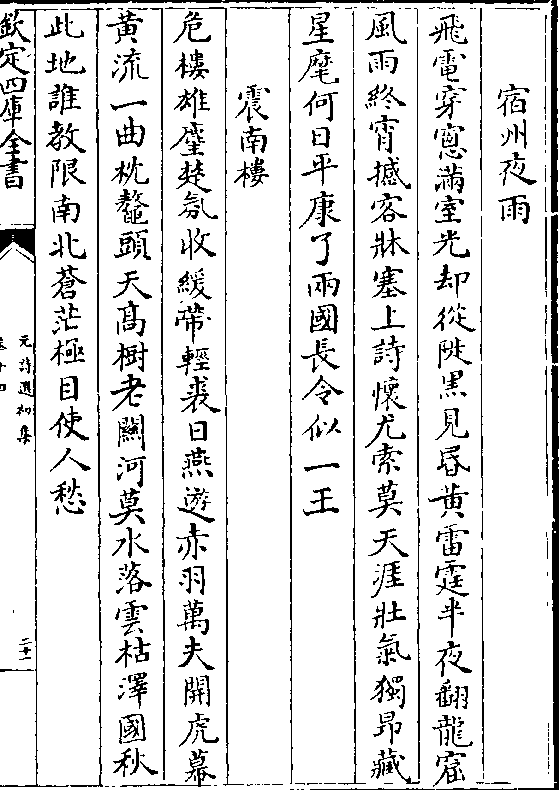 宿州夜雨
飛電穿窻滿室光却從陡黒見昬黄雷霆半夜翻龍窟
風雨終宵撼客牀塞上詩懷尤索莫天涯壯氣獨昂藏
星麾何日平康了兩國長令似一王
震南樓
危樓雄壓楚氛收緩帶輕裘日燕遊赤羽萬夫開虎幕
黄流一曲枕鼇頭天髙樹老闗河莫水落雲枯澤國秋
此地誰教限南北蒼茫極目使人愁
欽定四庫全書
元詩選初集
卷十四
二十一